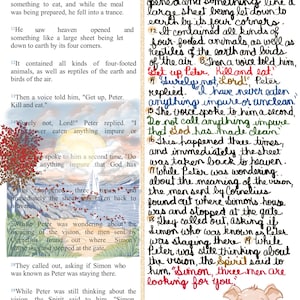 something to eat, and while the meal
was being prepared, he fell into a trance.
He saw heaven opened and
something like a large sheet being let
down to earth by its four corners.
It contained all kinds of four-footed
animals, as well as reptiles of the earth and
birds of the air.
Then a voice told him, "Get up, Peter.
Kill and eat."
not, Lord!" Peter replied. "I
eaten anything impure or
spoke to him a second time, "Do
impure that God has
While Peter was wondering
of the vision, the men sent by
found out where Simon's
was and stopped at the gate.
They called out, asking if Simon who
was known as Peter was staying there.
While Peter was still thinking about
the vision, the Spirit said to him, "Simon
something like a
large sheet being let down to
earth by its four corners.
12 It contained all kinds of
four-footed animals as well as
reptiles of the earth and birds
of the air. 13 Then a voice told him,
"Get up Peter. Kill and eat."
14 "Surely not, Lord!" Peter
replied. "I have never eaten
anything impure or unclean."
15 The voice spoke to him a second,
"Do not call anything impure
that God has made clean."
16 This happened three times
and immediately the sheet
was taken back to heaven.
17 While Peter was wondering
about the meaning of the vision,
the men sent by Cornelius
found out where Simon's house
was and stopped at the gate.
18 They called out, asking if
Simon who was known as Peter
was staying there. 19 While
Peter was still thinking about
the vision, the Spirit said to
him, "Simon, three men are
looking for you."